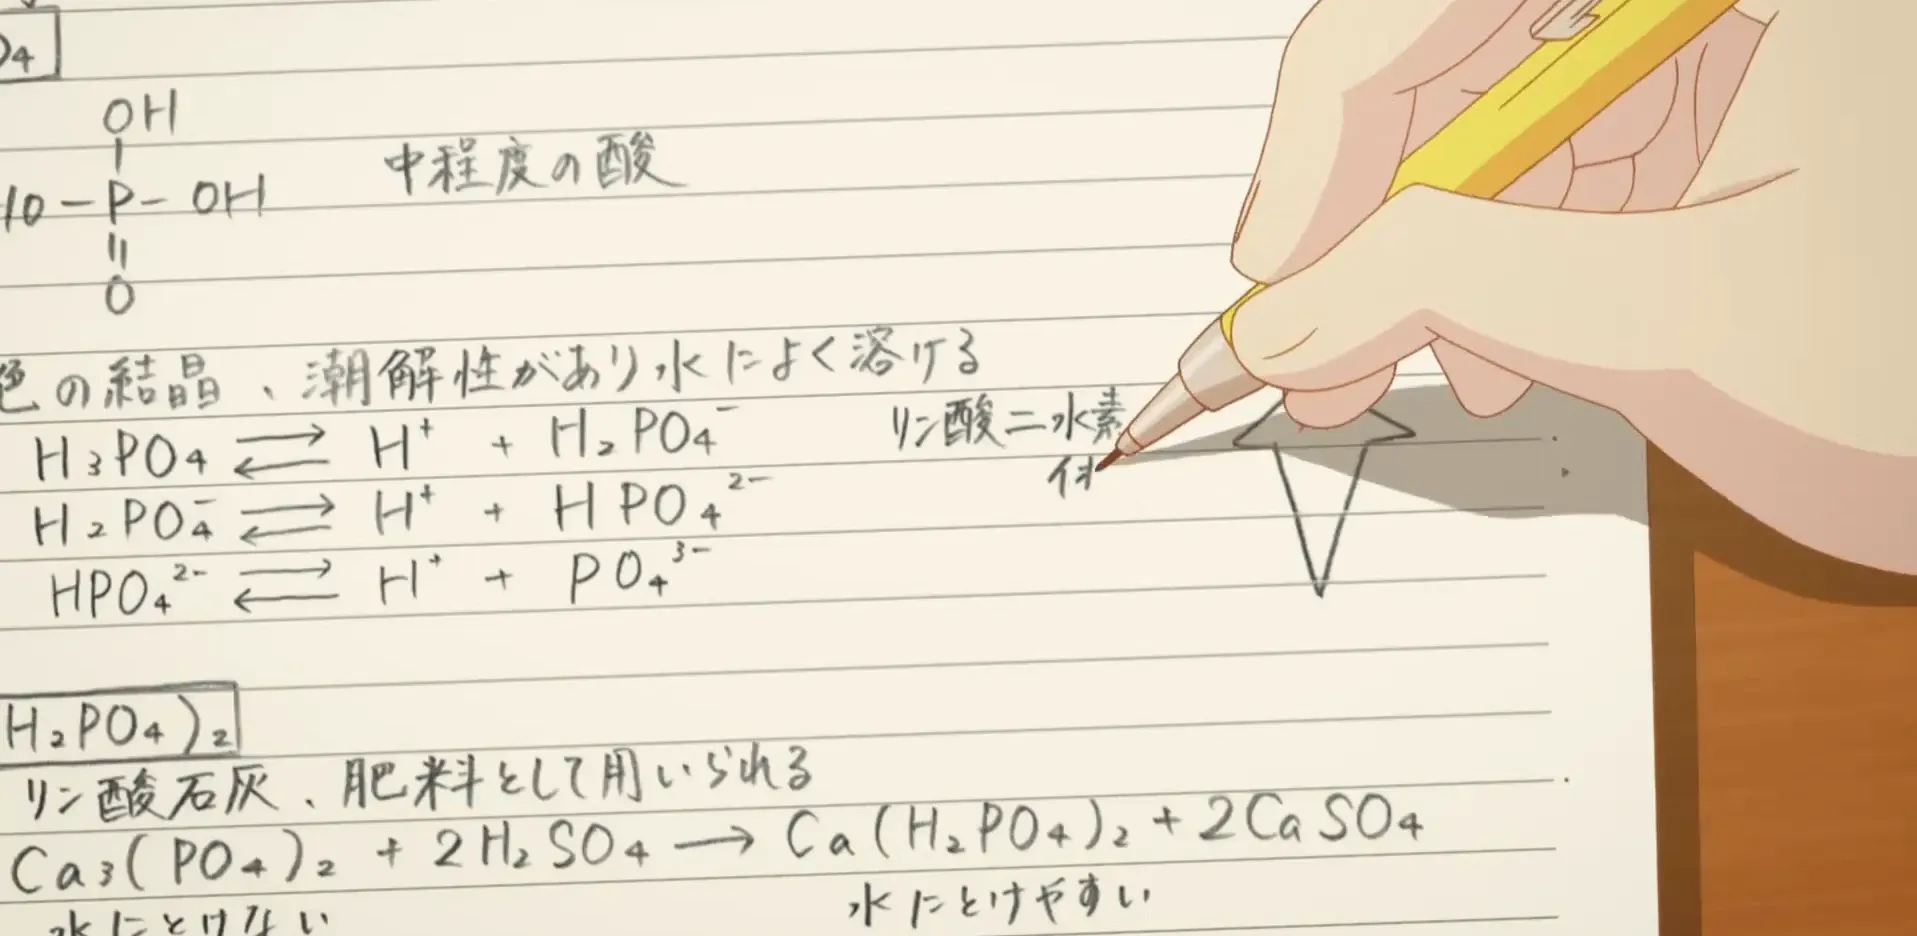 O₄
OH
HO-P-OH
O
中程度の酸
色の結晶、潮解性があり水によく溶ける
H₃PO₄ ⇄ H⁺ + H₂PO₄⁻
リン酸二水素
H₂PO₄⁻ ⇄ H⁺ + HPO₄²⁻
HPO₄²⁻ ⇄ H⁺ + PO₄³⁻
H₂PO₄)₂
リン酸石灰、肥料として用いられる
Ca₃(PO₄)₂ + 2H₂SO₄ → Ca(H₂PO₄)₂ + 2CaSO₄
水にとけない
水にとけやすい